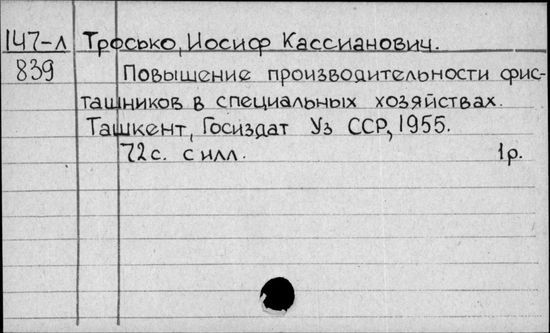 147-л Тросько, Иосиф Кассианович.
839 Повышение производительности фис-
ташников в специальных хозяйствах.
Ташкент, Госиздат Уз ССР, 1955.
72с. с илл. 1р.